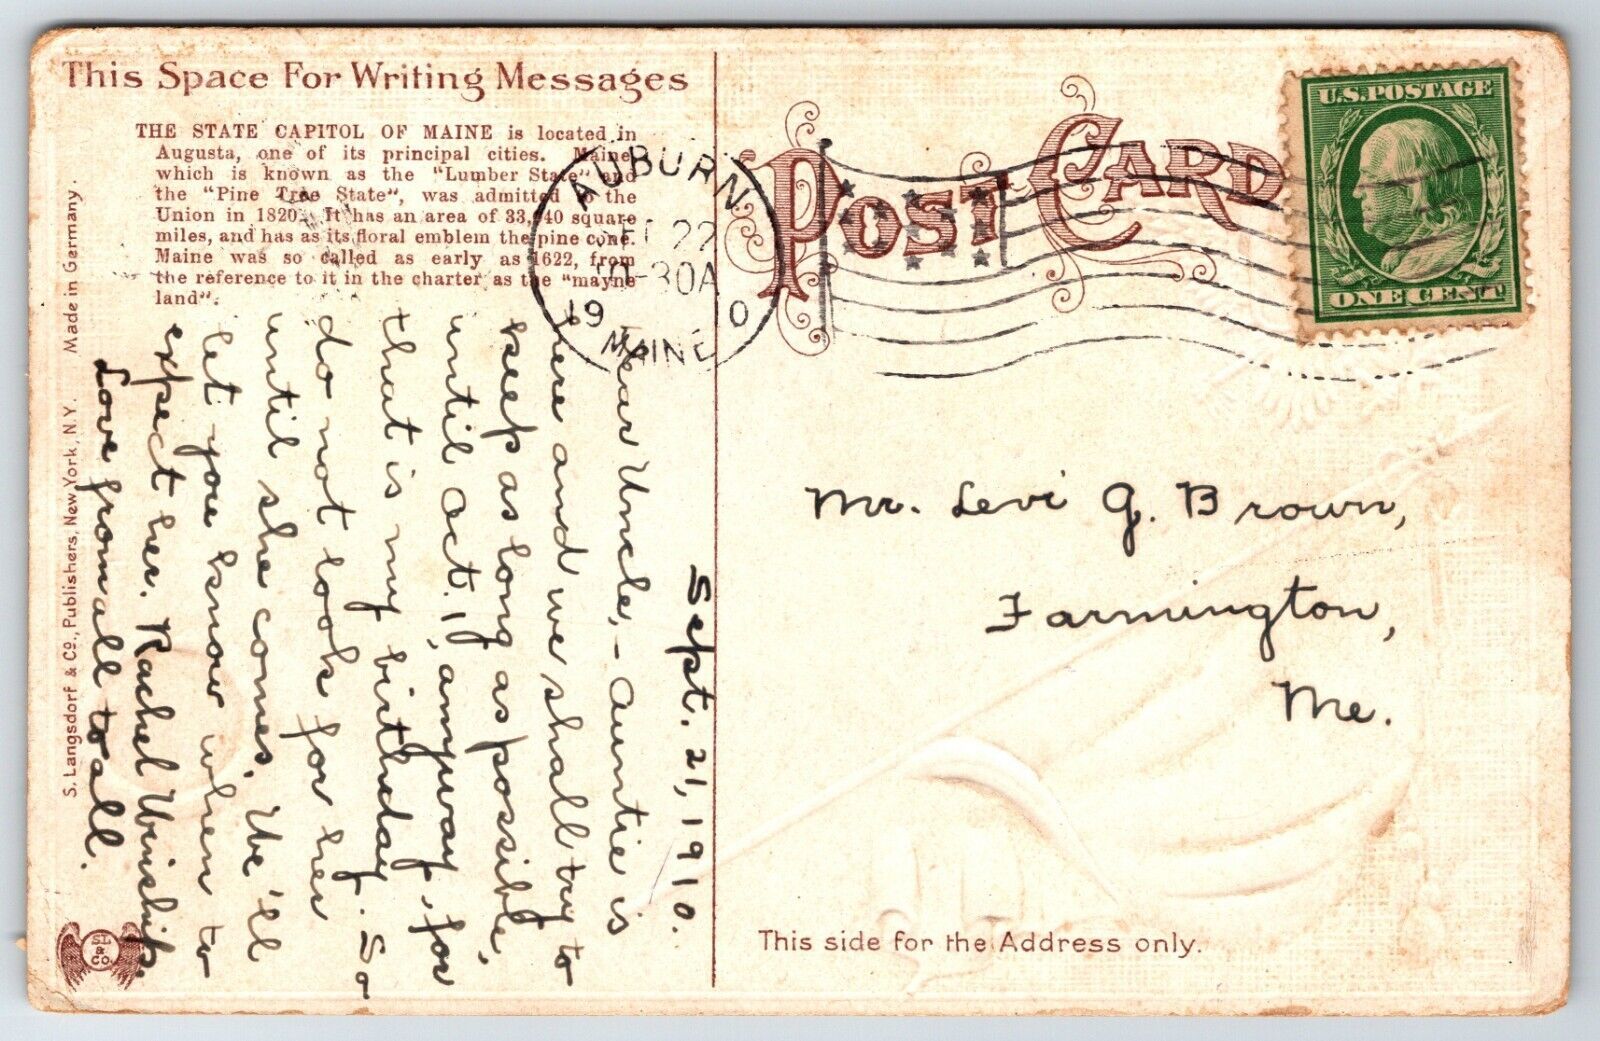 This Space For Writing Messages
THE STATE CAPITOL OF MAINE is located in
Augusta, one of its principal cities. Maine,
which is known as the "Lumber State" and
the "Pine Tree State", was admitted to the
Union in 1820. It has an area of 33,040 square
miles, and has as its floral emblem the pine cone.
Maine was so called as early as 1622, from
the reference to it in the charter as the "mayne
land".
Sept. 21, 1910.
Dear Uncle, - Auntie is
here and we shall try to
keep as long as possible,
until Oct. 1, anyway, for
that is my birthday. So
do not look for her
until she comes. We'll
let you know when to
expect her. Rachel Winship.
Love from all to all.
S. Langsdorf & Co., Publishers, New York, N.Y. Made in Germany.
S.L. & CO.
AUBURN
22
-30A
19 0
MAINE
POST CARD
U.S. POSTAGE
ONE CENT
Mr. Levi G. Brown,
Farmington,
Me.
This side for the Address only.